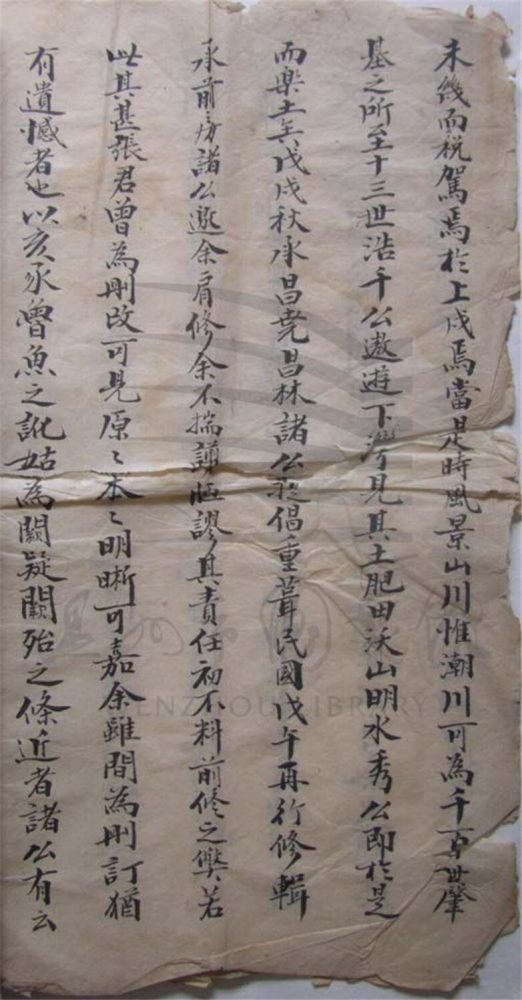 未幾而税駕焉於上戍焉當是時風景山川惟潮川可為千百世肇
基之所至十三世浩千公遨遊下灣見其土肥田沃山明水秀公即於是
而樂土矣戊戌秋承昌堯昌林諸公提倡重葺民國戊午再行修輯
承前房諸公邀余肩修余不揣謭陋謬其責任初不料前修之獘若
此其甚張君曾為刪改可見原〻本〻明晰可嘉余雖間為刪訂猶
有遺憾者也以亥豕魯魚之訛姑為闕疑闕殆之條近者諸公有云
LIBRARY